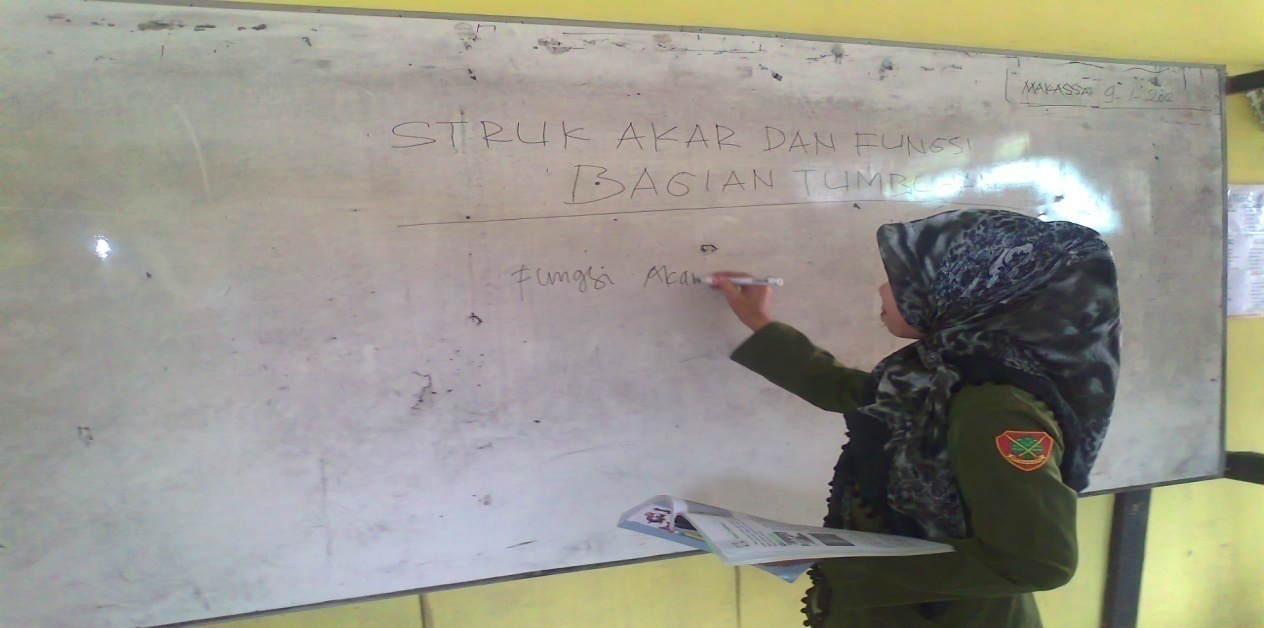 MAKASSA 9-1-202
STRUK AKAR DAN FUNGSI
BAGIAN TUMBUHAN
Fungsi Akar